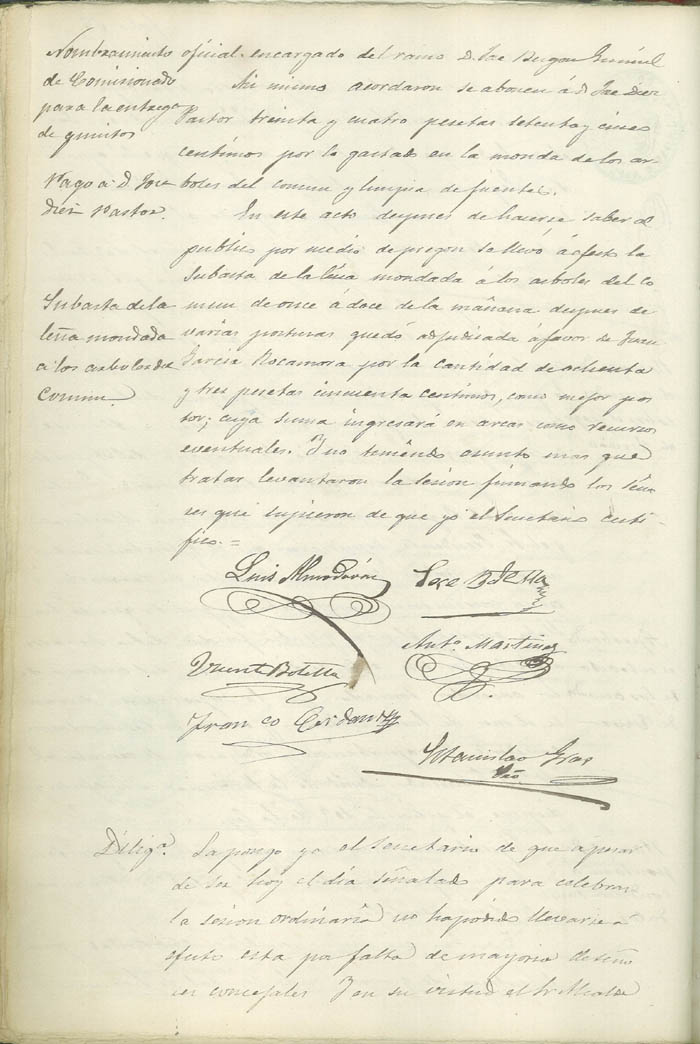 Nombramiento
de Comisionado
para la entrega
de quintos
Pago a D. Jose
Diez Pastor.
Subasta de la
leña mondada
a los arboles del
comun.
oficial encargado del ramo D. Jose
Asi mismo acordaron se abonen á D. Jose Diez
Pastor treinta y cuatro pesetas setenta y cinco
centimos por lo gastado en la monda de los ar
boles del comun y limpia de fuentes.
En este acto despues de hacerse saber al
publico por medio de pregon se llevó á efecto la
subasta de la leña mondada á los arboles del co
mun de once á doce de la mañana despues de
varias posturas quedó adjudicada á favor de Juan
Garcia Rocamora por la cantidad de ochenta
y tres pesetas cincuenta centimos, como mejor pos
tor; cuya suma ingresará en arcas como recursos
eventuales. Y no teniendo asunto mas que
tratar levantaron la sesion firmando los Seño
res que supieron de que yo el Secretario certi
fico. =
Luis Almodóvar
Jose Botella
Anto. Martinez
Vicente Botella
Franco Cerdan
Estanislao Gras
Srio.
Diliga. La pongo yo el Secretario de que á pesar
de ser hoy el dia señalado para celebrar
la sesion ordinaria no ha podido llevarse á
efecto esta por falta de mayoria de seño
res concejales Y en su virtud el Sr. Alcalde